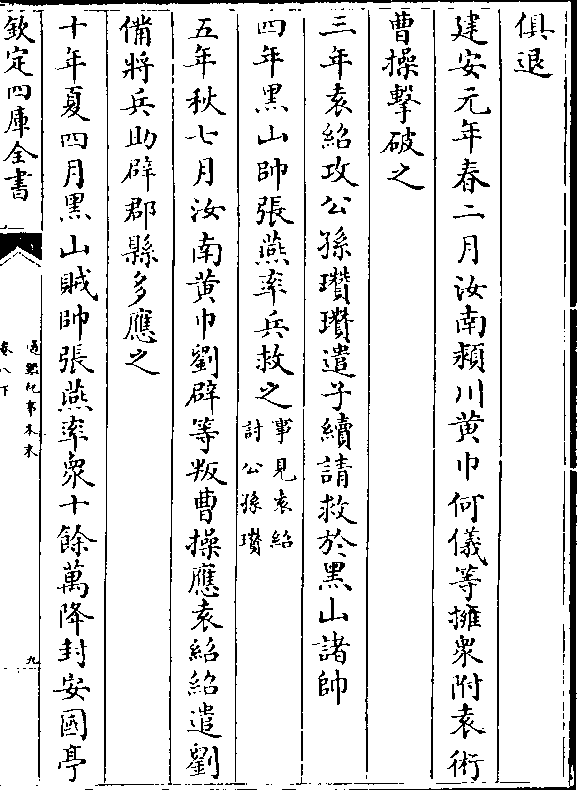 俱退
建安元年春二月汝南潁川黄巾何儀等擁衆附袁術
曹操擊破之
三年袁紹攻公孫瓚瓚遣子續請救於黑山諸帥
四年黑山帥張燕率兵救之事見袁紹討公孫瓚
五年秋七月汝南黄巾劉辟等叛曹操應袁紹紹遣劉
備將兵助辟郡縣多應之
十年夏四月黑山賊帥張燕率衆十餘萬降封安國亭
欽定四庫全書
通鑑紀事本末
卷八下
九